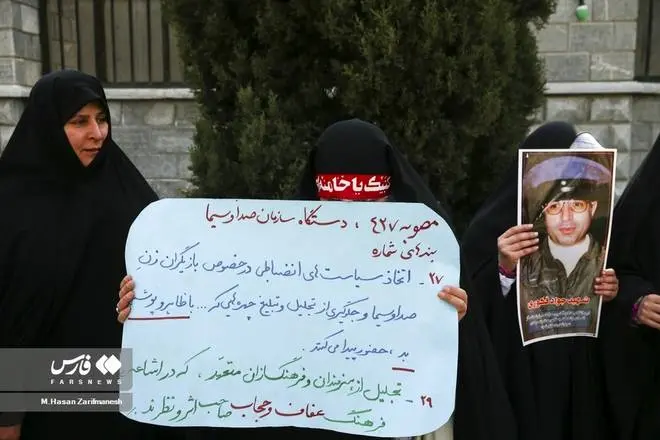 لبیک یا خامنه‌ای
مصوبه ۴۲۷ ، دستگاه سازمان صدا و سیما
بندهای شماره
۲۷- اتخاذ سیاست های انضباطی در خصوص بازیگران زنِ
صدا و سیما و جلوگیری از تجلیل و تبلیغ چهره هایی که... با ظاهر و پوشش
بد، حضور پیدا می کنند.
۲۹- تجلیل از هنرمندان و فرهنگ‌سازان متعهد، که در اشاعه
فرهنگ عفاف و حجاب صاحب اثر و نظرند.
شهید جواد فکوری
فارس
FARSNEWS
M.Hasan Zarifmanesh